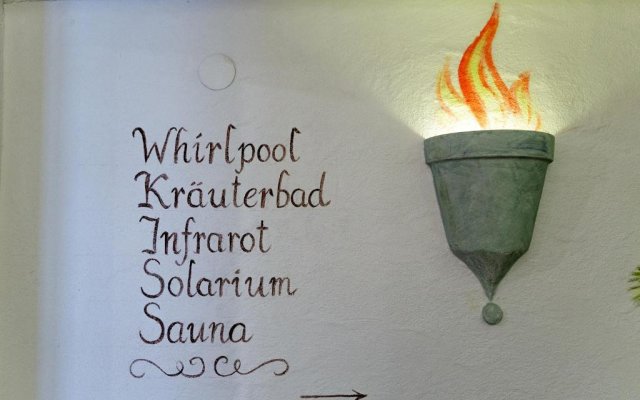 Whirlpool
Kräuterbad
Infrarot
Solarium
Sauna